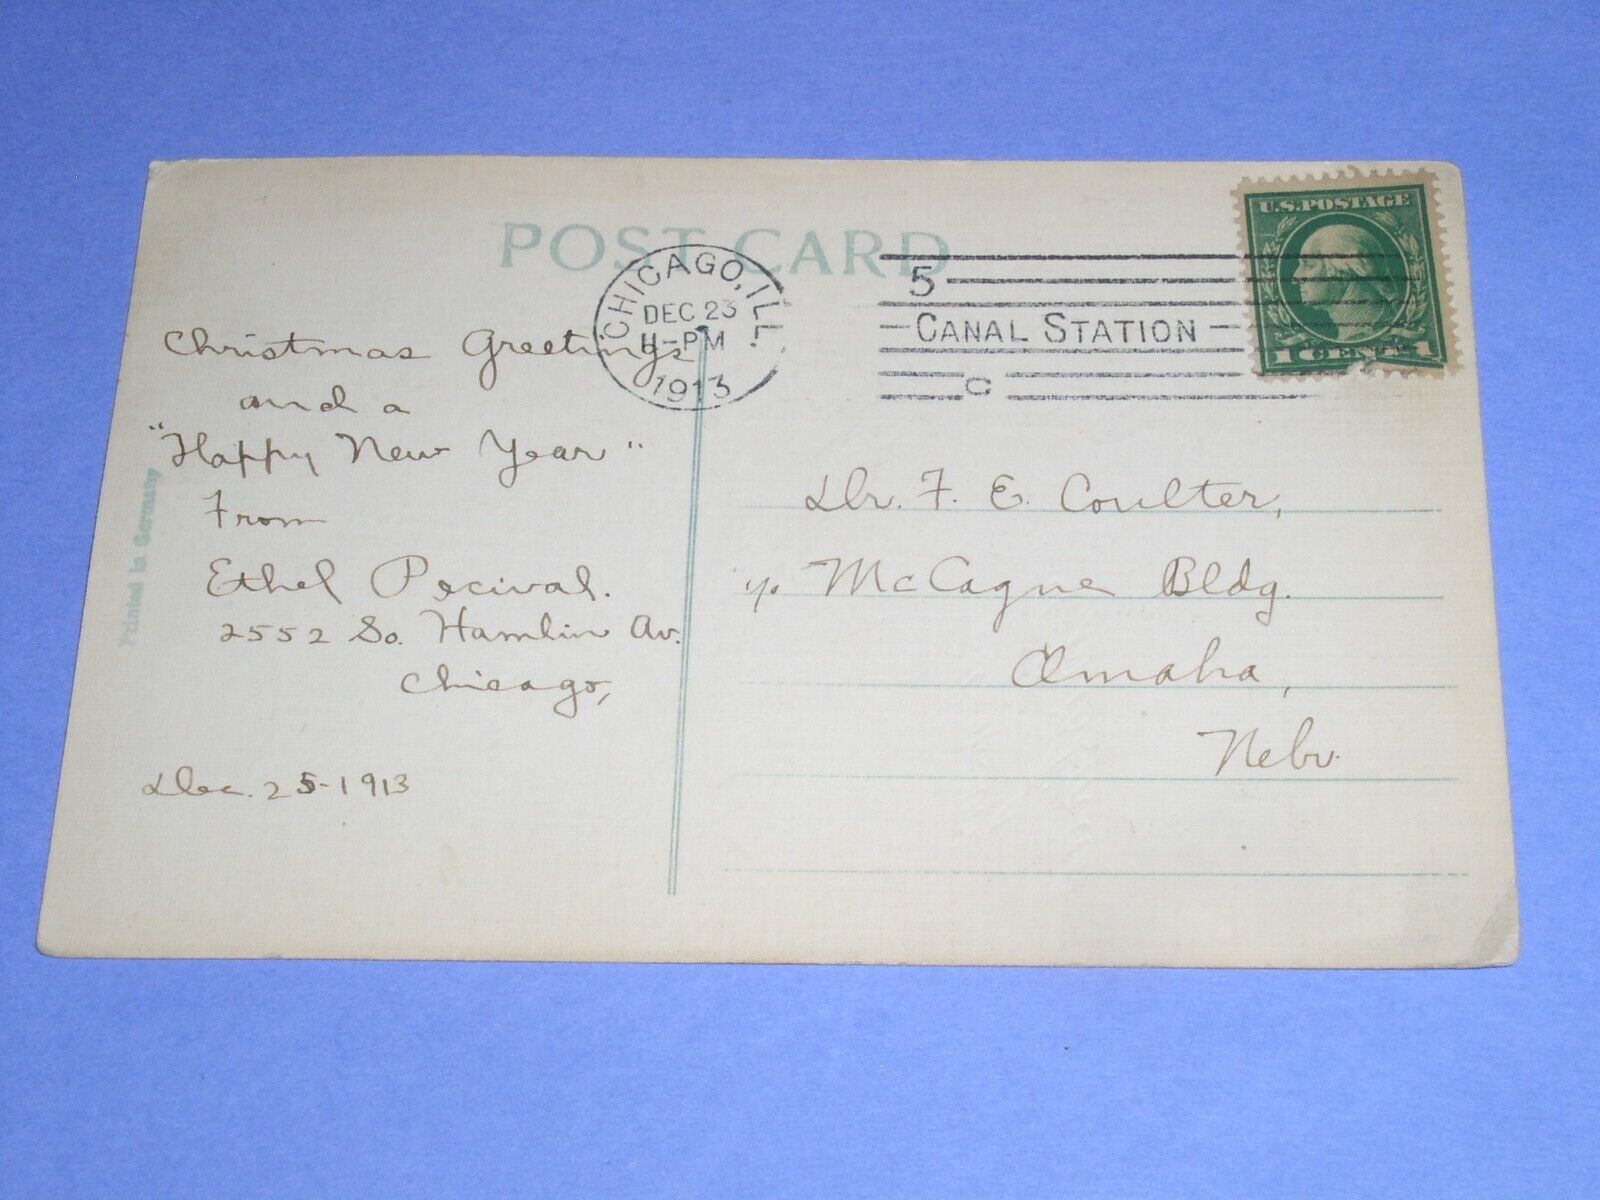 POST CARD
CHICAGO, ILL.
DEC 23
11-PM
1913
5
CANAL STATION
C
U.S. POSTAGE
1 CENT 1
Christmas Greetings
and a
"Happy New Year"
From
Ethel Pecival.
2552 So. Hamlin Av.
Chicago,
Dec. 25-1913
Printed in Germany
Dr. F. E. Coulter,
c/o McCague Bldg.
Omaha,
Nebr.